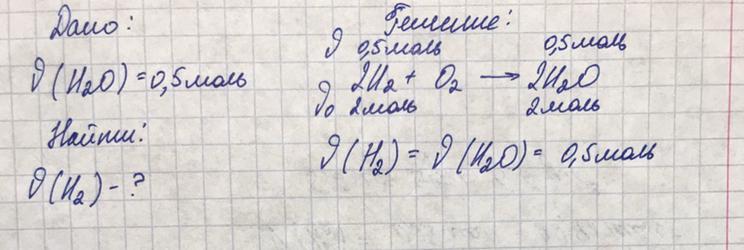 Дано:
ν(H₂O) = 0,5 моль
Найти:
ν(H₂) - ?
Решение:
ν 0,5 моль 0,5 моль
2H₂ + O₂ → 2H₂O
ν₀ 2 моль 2 моль
ν(H₂) = ν(H₂O) = 0,5 моль